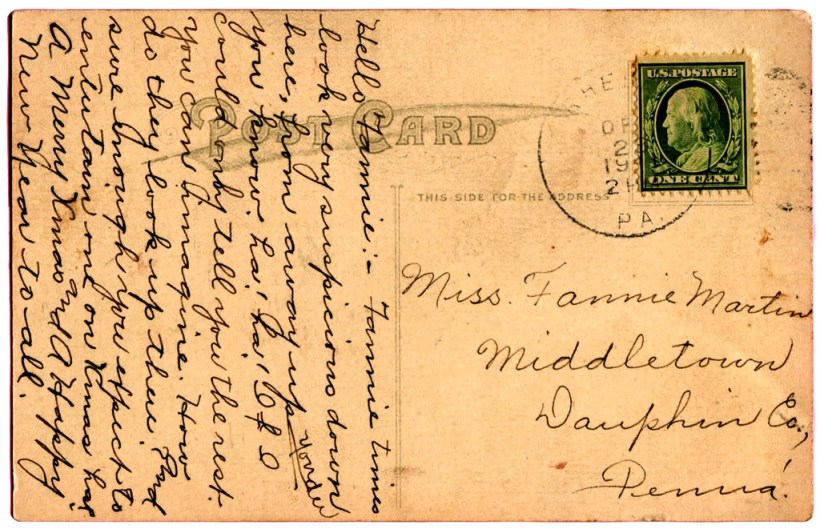 POST CARD
THIS SIDE FOR THE ADDRESS
U.S. POSTAGE
ONE CENT
PA.
Hello Fannie:- Fannie times
look very suspicious down
here, from away up yonder
you know. ha! ha! If I
could only tell you the rest.
You can immagine. How
do they look up there
sure enough you expect to
entertain one on Xmas ha.
A Merry Xmas and A Happy
New Year to-all.
Miss. Fannie Martin
Middletown
Dauphin Co.,
Penna.